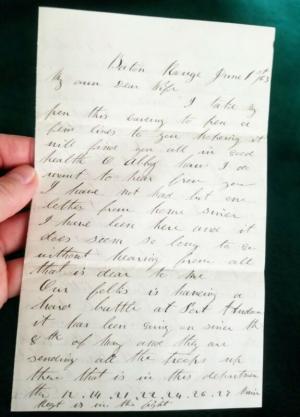 Baton Rouge June 1st 1863
My own Dear Wife
I take my
pen this evening to pen a
few lines to you hopeing it
will find you all in good
health O Abby how I do
want to hear from you
I have not had but one
letter from home since
I have been here and it
does seem so long to go
without hearing from all
that is dear to me
Our folks is haveing a
hard battle at Port Hudson
it has been going on since the
8th of May and they are
sending all the troops up
there that is in this department
the 12. 14. 21. 22. 24. 26. 27 Maine
Regt is in the fight